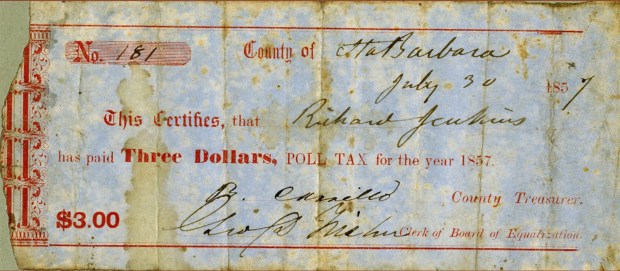 No. 181 County of Sta Barbara
July 30 1857
This Certifies, that Richard Jenkins
has paid Three Dollars, POLL TAX for the year 1857.
R. Carrillo County Treasurer.
$3.00
Geo D Fisher Clerk of Board of Equalization.